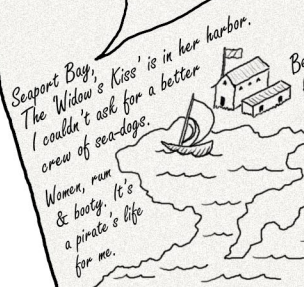 Seaport Bay,
The 'Widow's Kiss' is in her harbor.
I couldn't ask for a better
crew of sea-dogs.
Women, rum
& booty. It's
a pirate's life
for me.
Be